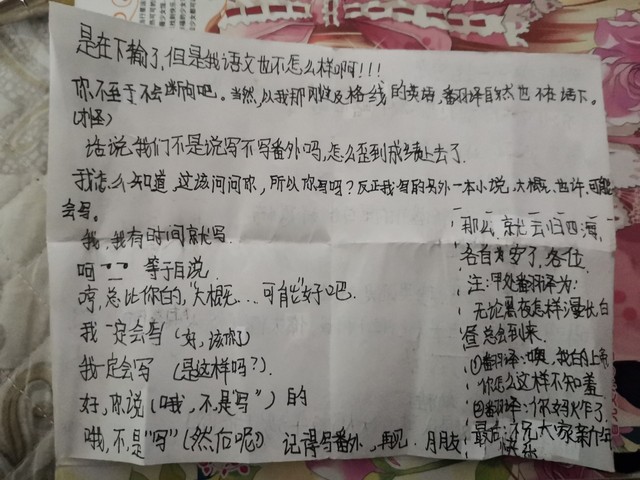 是在下输了,但是我语文也不怎么样啊!!!
你不至于不会断句吧。当然,以我那刚及格线的英语,翻译自然也不在话下。
(才怪)
话说我们不是说写不写番外吗,怎么歪到成绩上去了.
我怎么知道,这该问问你,所以你写吗?反正我写的另外一本小说,大概、也许、可能
会写。
我,我有时间就写.
呵 等于白说.
哼,总比你的"大概…可能"好了吧.
我一定会写(好,该你)
我一定会写 (是这样吗?).
好,你说(哦,不是"写")的
哦,不是"写"(然后呢) 记得写番外,再见,月朋友
那么,就云归四海,
各自为安了,各位.
注:甲处翻译为:
无论黑夜怎样漫长白
昼总会到来.
①翻译:噢,我的上帝
你怎么这样不知羞
②翻译:你妈炸了
最后:祝大家新年
快乐